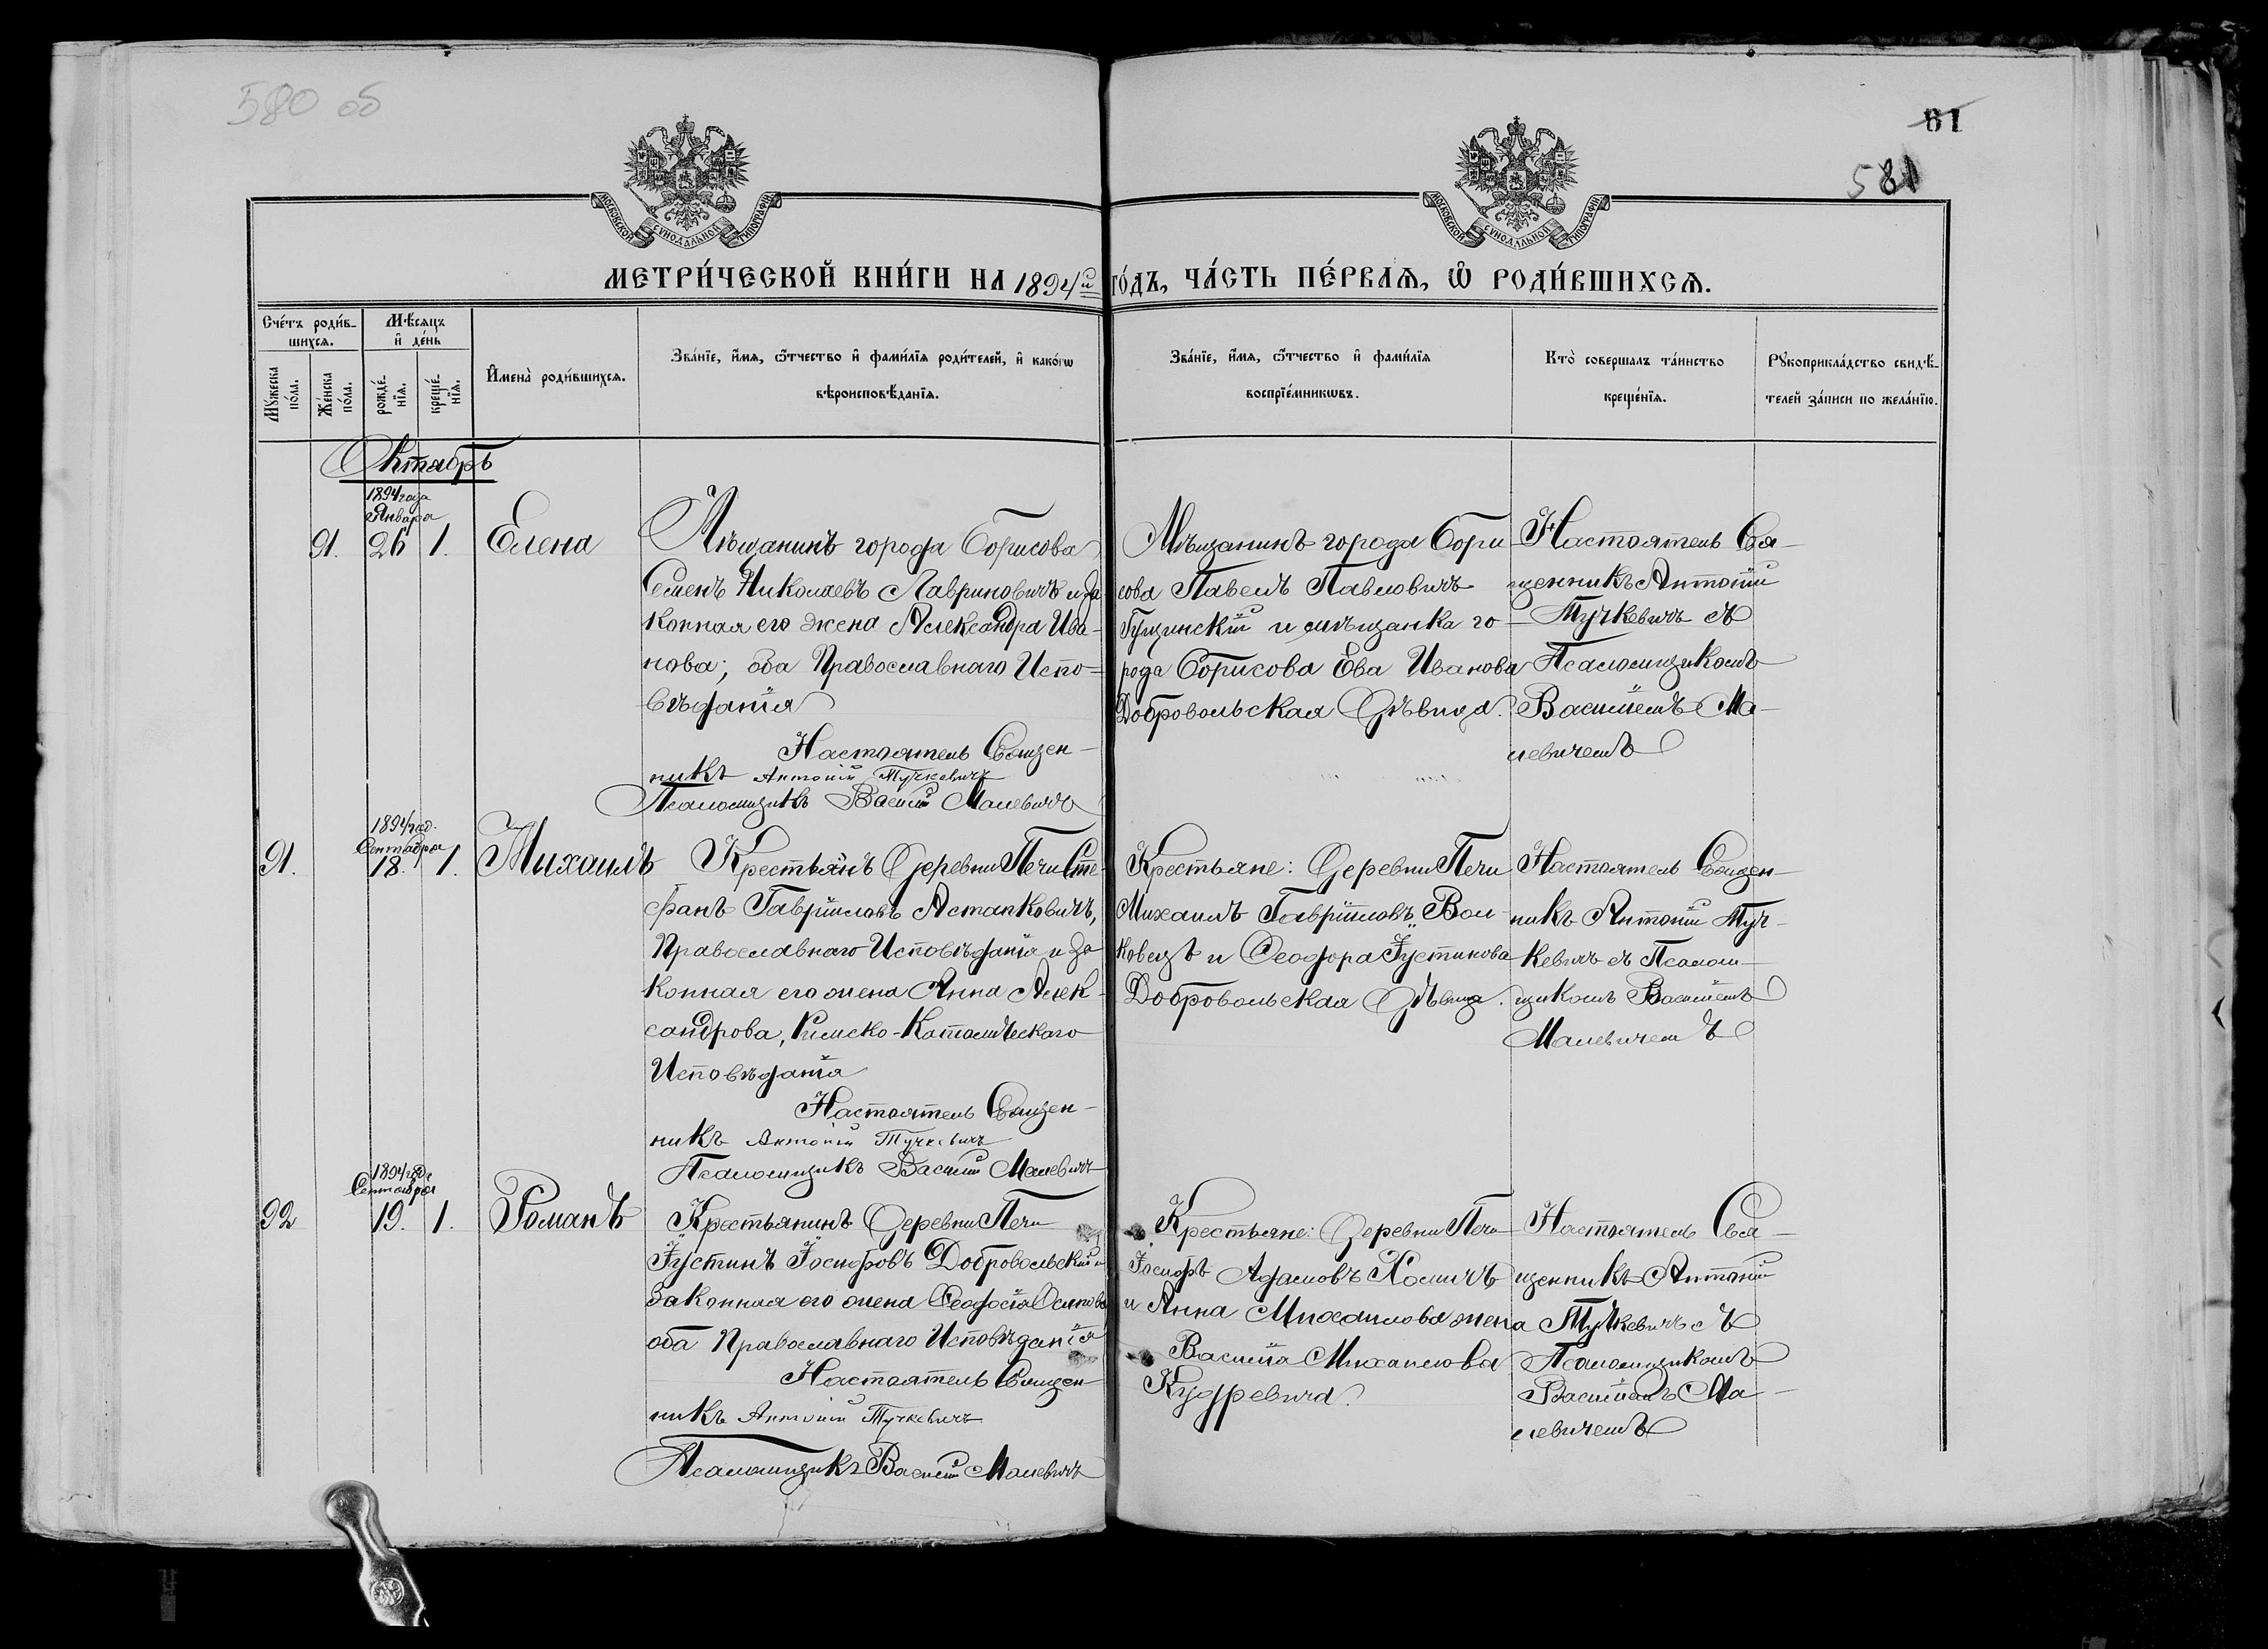 580 об
61
581
МОСКОВСКОЙ СѴНОДАЛЬНОЙ ТИПОГРАФІИ
МОСКОВСКОЙ СѴНОДАЛЬНОЙ ТИПОГРАФІИ
МЕТРИ́ЧЕСКОЙ КНИ́ГИ НА 1894й ГО́ДЪ, ЧА́СТЬ ПЕ́РВАѦ, Ѽ РОДИ́ВШИХСѦ.
Сче́тъ роди́в-
шихсѧ.
Мѣ́сѧцъ
и҆ де́нь
Мꙋ́жеска по́ла.
Же́нска по́ла.
рожде́-нїѧ.
креще́-нїѧ.
И҆мена̀ роди́вшихсѧ.
Зва́нїе, и҆́мѧ, ѻ҆́тчество и҆ фами́лїѧ роди́телей, и҆ како́гѡ
вѣроисповѣ́данїѧ.
Зва́нїе, и҆́мѧ, ѻ҆́тчество и҆ фами́лїѧ
воспрїе́мникѡвъ.
Кто̀ соверша́лъ та́инство
креще́нїѧ.
Рꙋкоприкла́дство свидѣ́-
телей за́писи по жела́нїю.
Октябрь
1894 года
Января
91. 26 1. Елена
Мѣщанинъ города Борисова
Семенъ Николаевъ Лавриновичъ и за
конная его жена Александра Ива-
нова; оба Православнаго Испо-
вѣданія
Настоятель Священ-
никъ Антоній Тучкевичъ
Псаломщикъ Василій Малевичъ
Мѣщанинъ города Бори
сова Павелъ Павловичъ
Гущинскій и мѣщанка го-
рода Борисова Ева Иванова
Добровольская Дѣвица.
Настоятель Свя-
щенникъ Антоній
Тучкевичъ съ
Псаломщикомъ
Василіемъ Ма-
левичемъ
1894 год.
Сентября
91. 18. 1. Михаилъ
Крестьянъ Деревни Печи Сте-
фанъ Гавріиловъ Астапковичъ,
Православнаго Исповѣданія и за
конная его жена Анна Алек-
сандрова, Римско-Католическаго
Исповѣданія
Настоятель Священ-
никъ Антоній Тучкевичъ
Псаломщикъ Василій Малевичъ
Крестьяне: Деревни Печи
Михаилъ Гавріиловъ Вол
ковецъ и Ѳеодора Іустинова
Добровольская Дѣвица.
Настоятель Священ-
никъ Антоній Туч-
кевичъ съ Псалом-
щикомъ Василіемъ
Малевичемъ
1894 года
Сентября
92 19. 1. Романъ
Крестьянинъ Деревни Печи
Іустинъ Іосифовъ Добровольскій и
законная его жена Ѳеодосія Осипова
оба Православнаго Исповѣданія
Настоятель Священ-
никъ Антоній Тучкевичъ
Псаломщикъ Василій Малевичъ
Крестьяне: Деревни Печи
Іосифъ Адамовъ Хомичъ
и Анна Михаилова жена
Василія Михаилова
Кудревича.
Настоятель Свя-
щенникъ Антоній
Тучкевичъ съ
Псаломщикомъ
Василіемъ Ма-
левичемъ